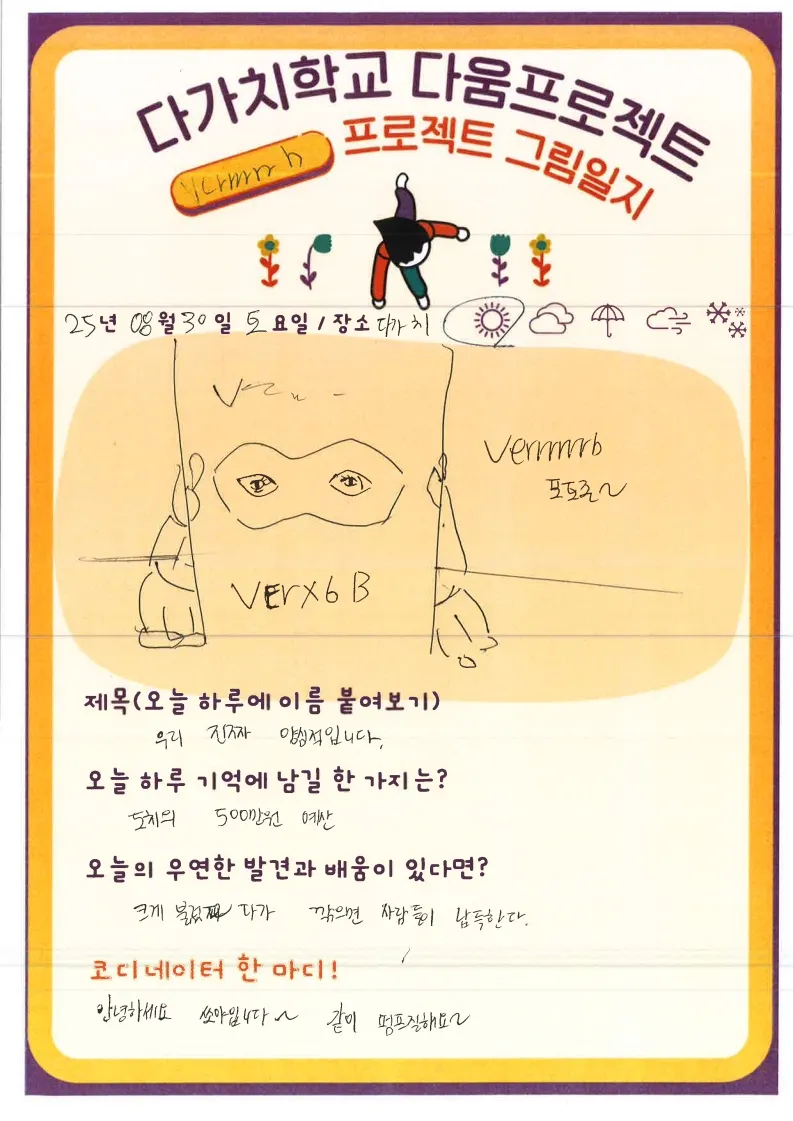 다가치학교 다움프로젝트
프로젝트 그림일지
25년 08월 30일 토요일 / 장소 다가치
Vermmrb
포토존~
VERX6B
제목(오늘 하루에 이름 붙여보기)
우리 진짜 양심적입니다.
오늘 하루 기억에 남길 한 가지는?
도치의 500만원 예산
오늘의 우연한 발견과 배움이 있다면?
크게 불렀다가 깎으면 사람들이 납득한다.
코디네이터 한 마디!
안녕하세요 쏘야입니다~ 같이 펌프질해요~